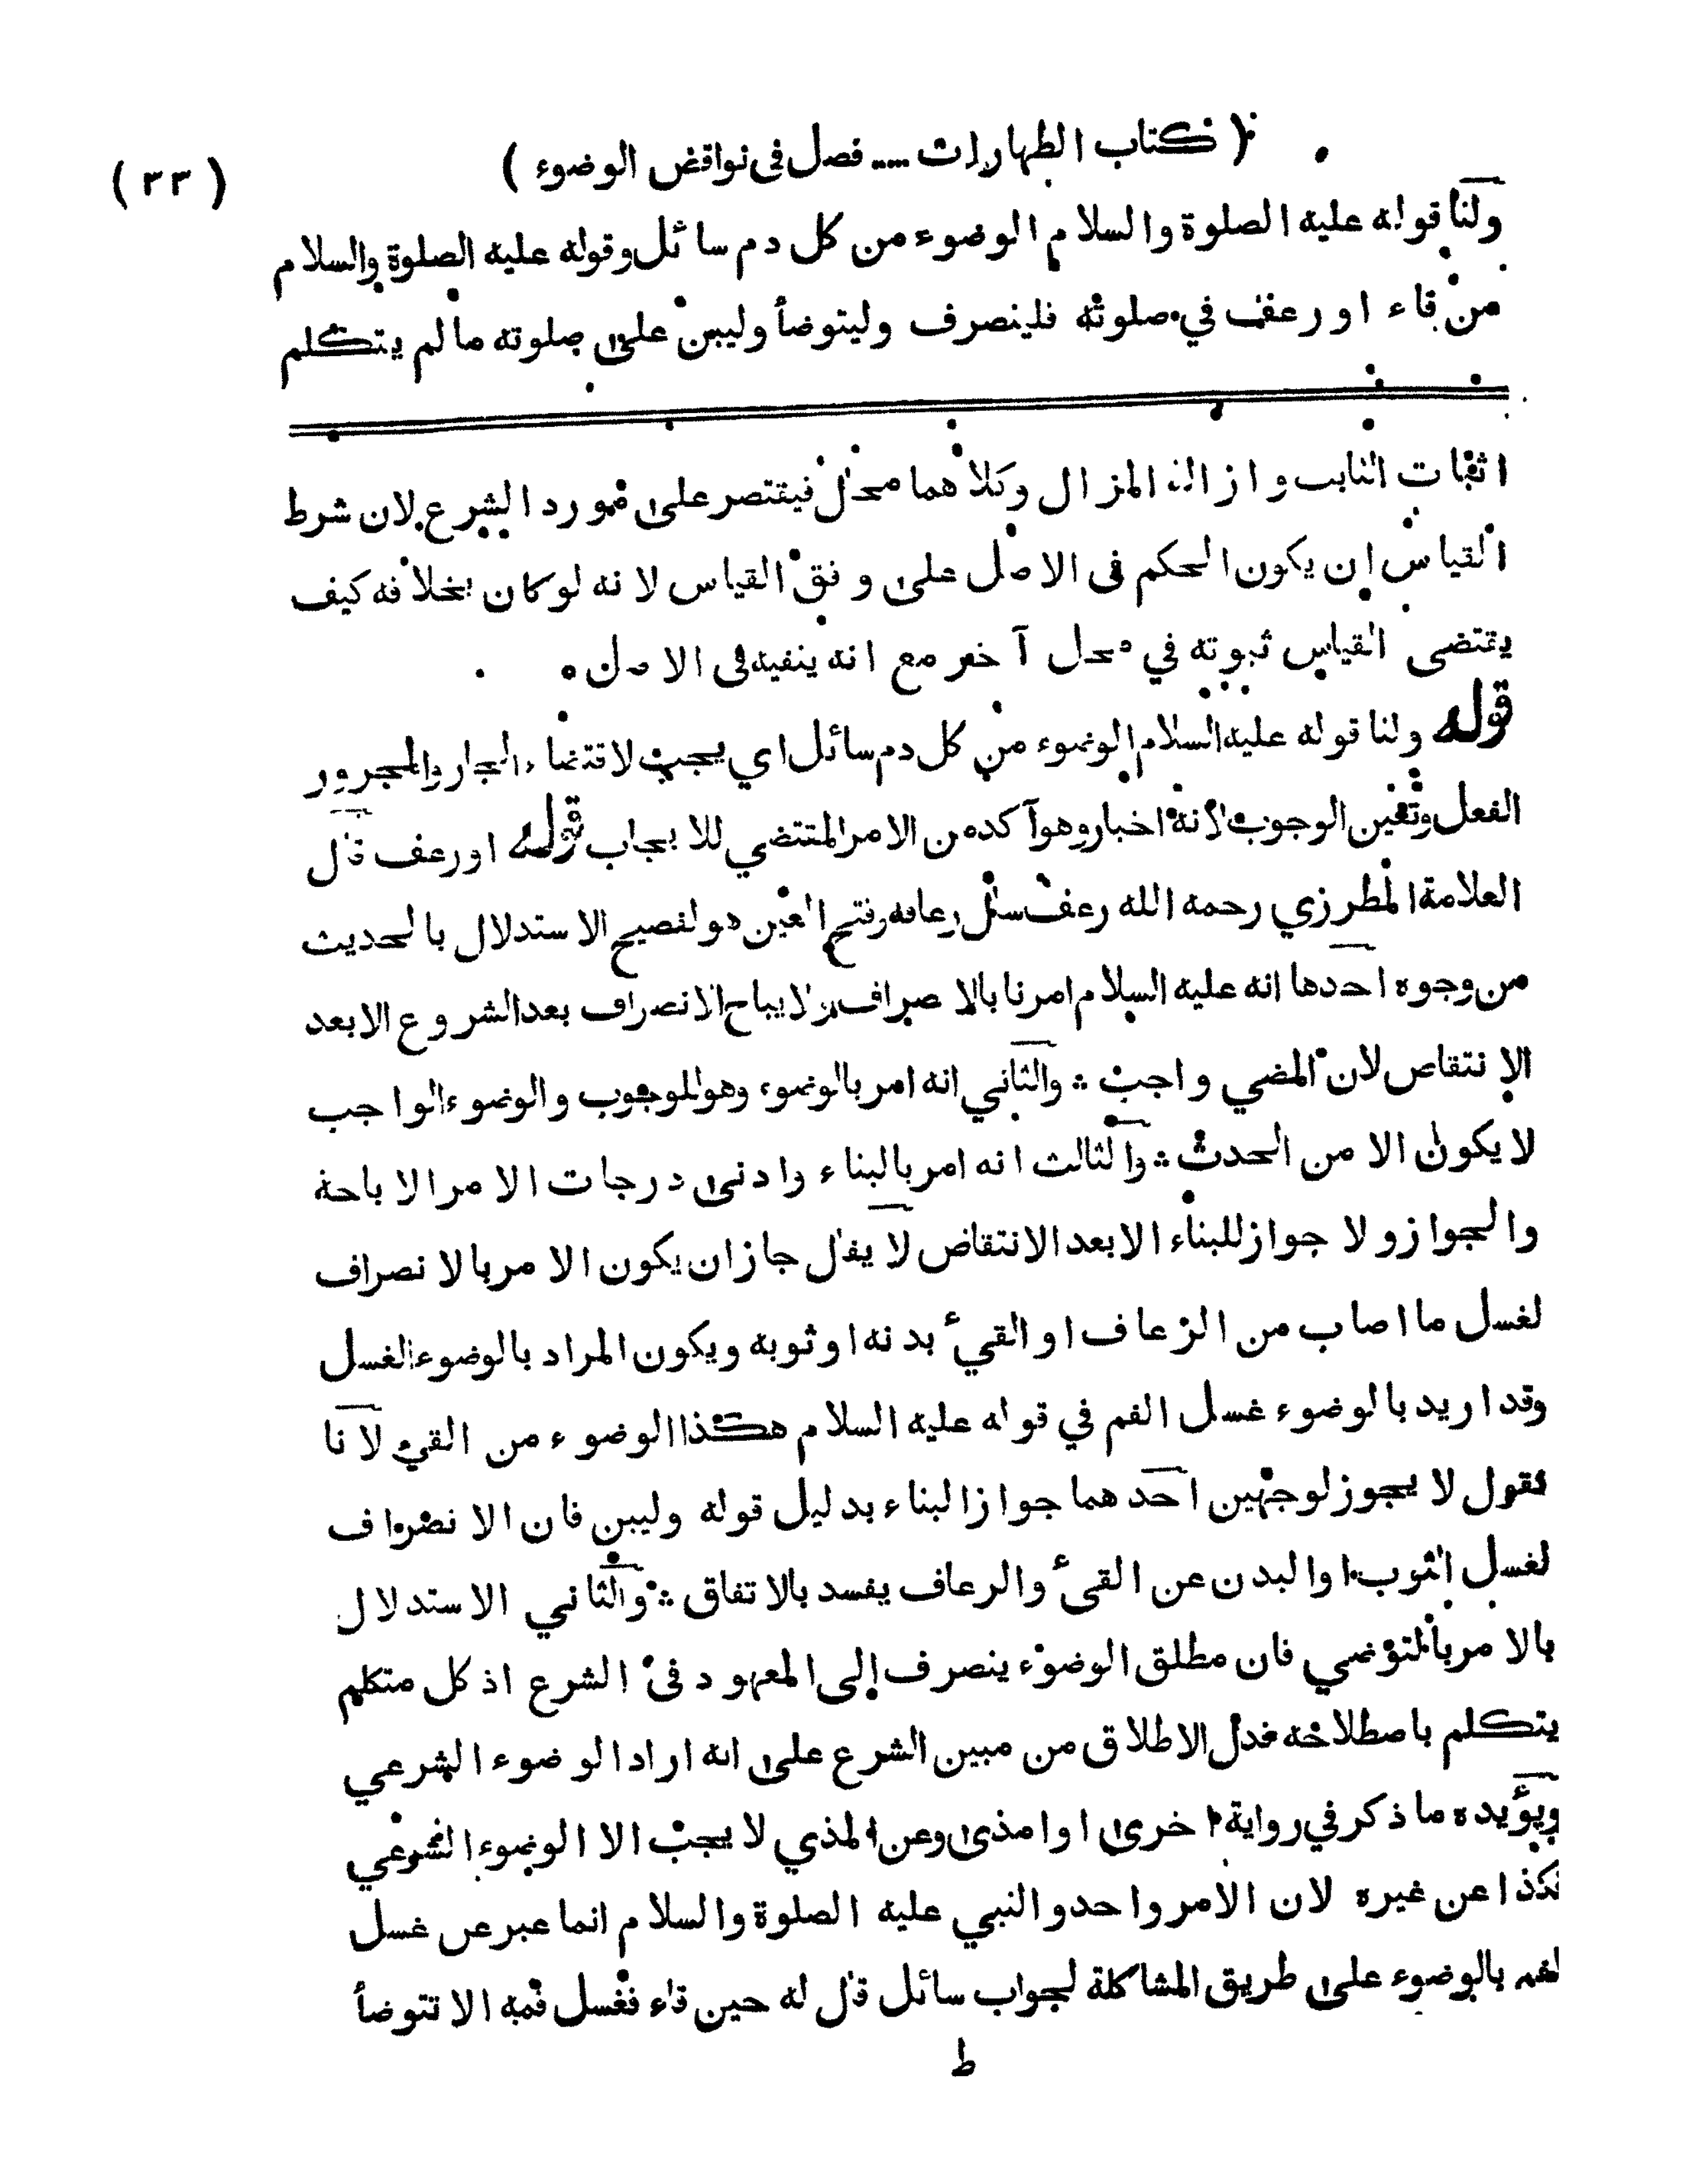 ( كتاب الطهارات .... فصل في نواقض الوضوء ) ( ٣٣ )
ولنا قوله عليه الصلوة والسلام الوضوء من كل دم سائل وقوله عليه الصلوة والسلام
من قاء او رعف في صلوته فلينصرف وليتوضأ وليبن على صلوته ما لم يتكلم
اثبات الثابت وازالة المزال وكلاهما محال فيقتصر على مورد الشرع لان شرط
القياس ان يكون الحكم في الاصل على وفق القياس لانه لو كان بخلافه كيف
يقتضى القياس ثبوته في محل آخر مع انه ينفيه في الاصل ٠
قوله ولنا قوله عليه السلام الوضوء من كل دم سائل اي يجب لاقتضاء الجار والمجرور
الفعل وتعين الوجوب لانه اخبار وهو آكد من الامر المقتضي للايجاب قوله او رعف قال
العلامة المطرزي رحمه الله رعف سال رعافه وفتح العين هو لفصيح الاستدلال بالحديث
من وجوه احدها انه عليه السلام امرنا بالانصراف ولا يباح الانصراف بعد الشروع الا بعد
الانتقاص لان المضي واجب ** والثاني انه امر بالوضوء وهو للوجوب والوضوء الواجب
لا يكون الا من الحدث ** والثالث انه امر بالبناء وادنى درجات الامر الاباحة
والجواز ولا جواز للبناء الا بعد الانتقاض لا يقال جاز ان يكون الامر بالانصراف
لغسل ما اصاب من الرعاف او القيء بدنه او ثوبه ويكون المراد بالوضوء الغسل
وقد اريد بالوضوء غسل الفم في قوله عليه السلام هكذا الوضوء من القيء لانا
نقول لا يجوز لوجهين احدهما جواز البناء بدليل قوله وليبن فان الانصراف
لغسل الثوب او البدن عن القيء والرعاف يفسد بالاتفاق ** والثاني الاستدلال
بالامر بالتوضي فان مطلق الوضوء ينصرف إلى المعهود في الشرع اذ كل متكلم
يتكلم باصطلاحه فدل الاطلاق من مبين الشرع على انه اراد الوضوء الشرعي
ويؤيده ما ذكر في رواية اخرى او امذى وعن المذي لا يجب الا الوضوء الشرعي
فكذا عن غيره لان الامر واحد والنبي عليه الصلوة والسلام انما عبر عن غسل
لفم بالوضوء على طريق المشاكلة لجواب سائل قال له حين قاء فغسل فمه الا تتوضأ
ط